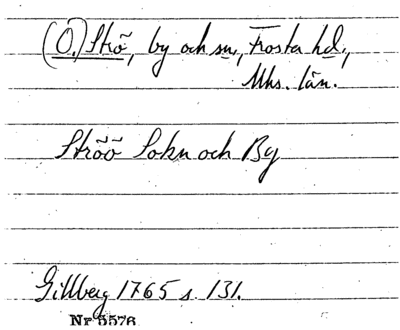 (Ö.) Strö, by och sn, Frosta hd.,
Mhs. län.
Ströö Sokn och By
Gillberg 1765 s. 131.
Nr 5576